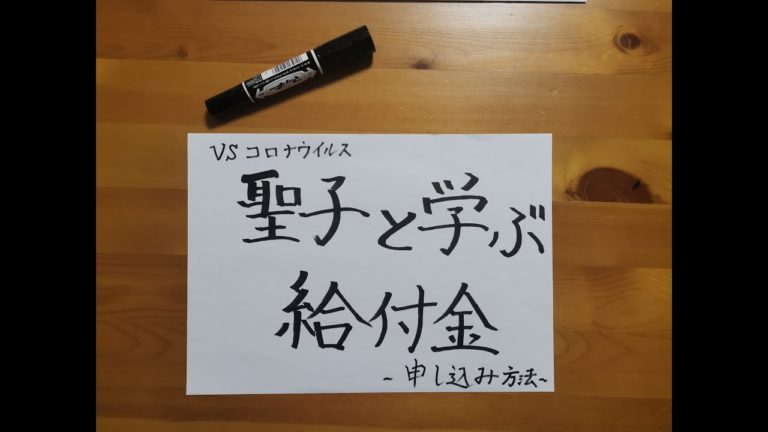 VSコロナウイルス
聖子と学ぶ
給付金
~申し込み方法~